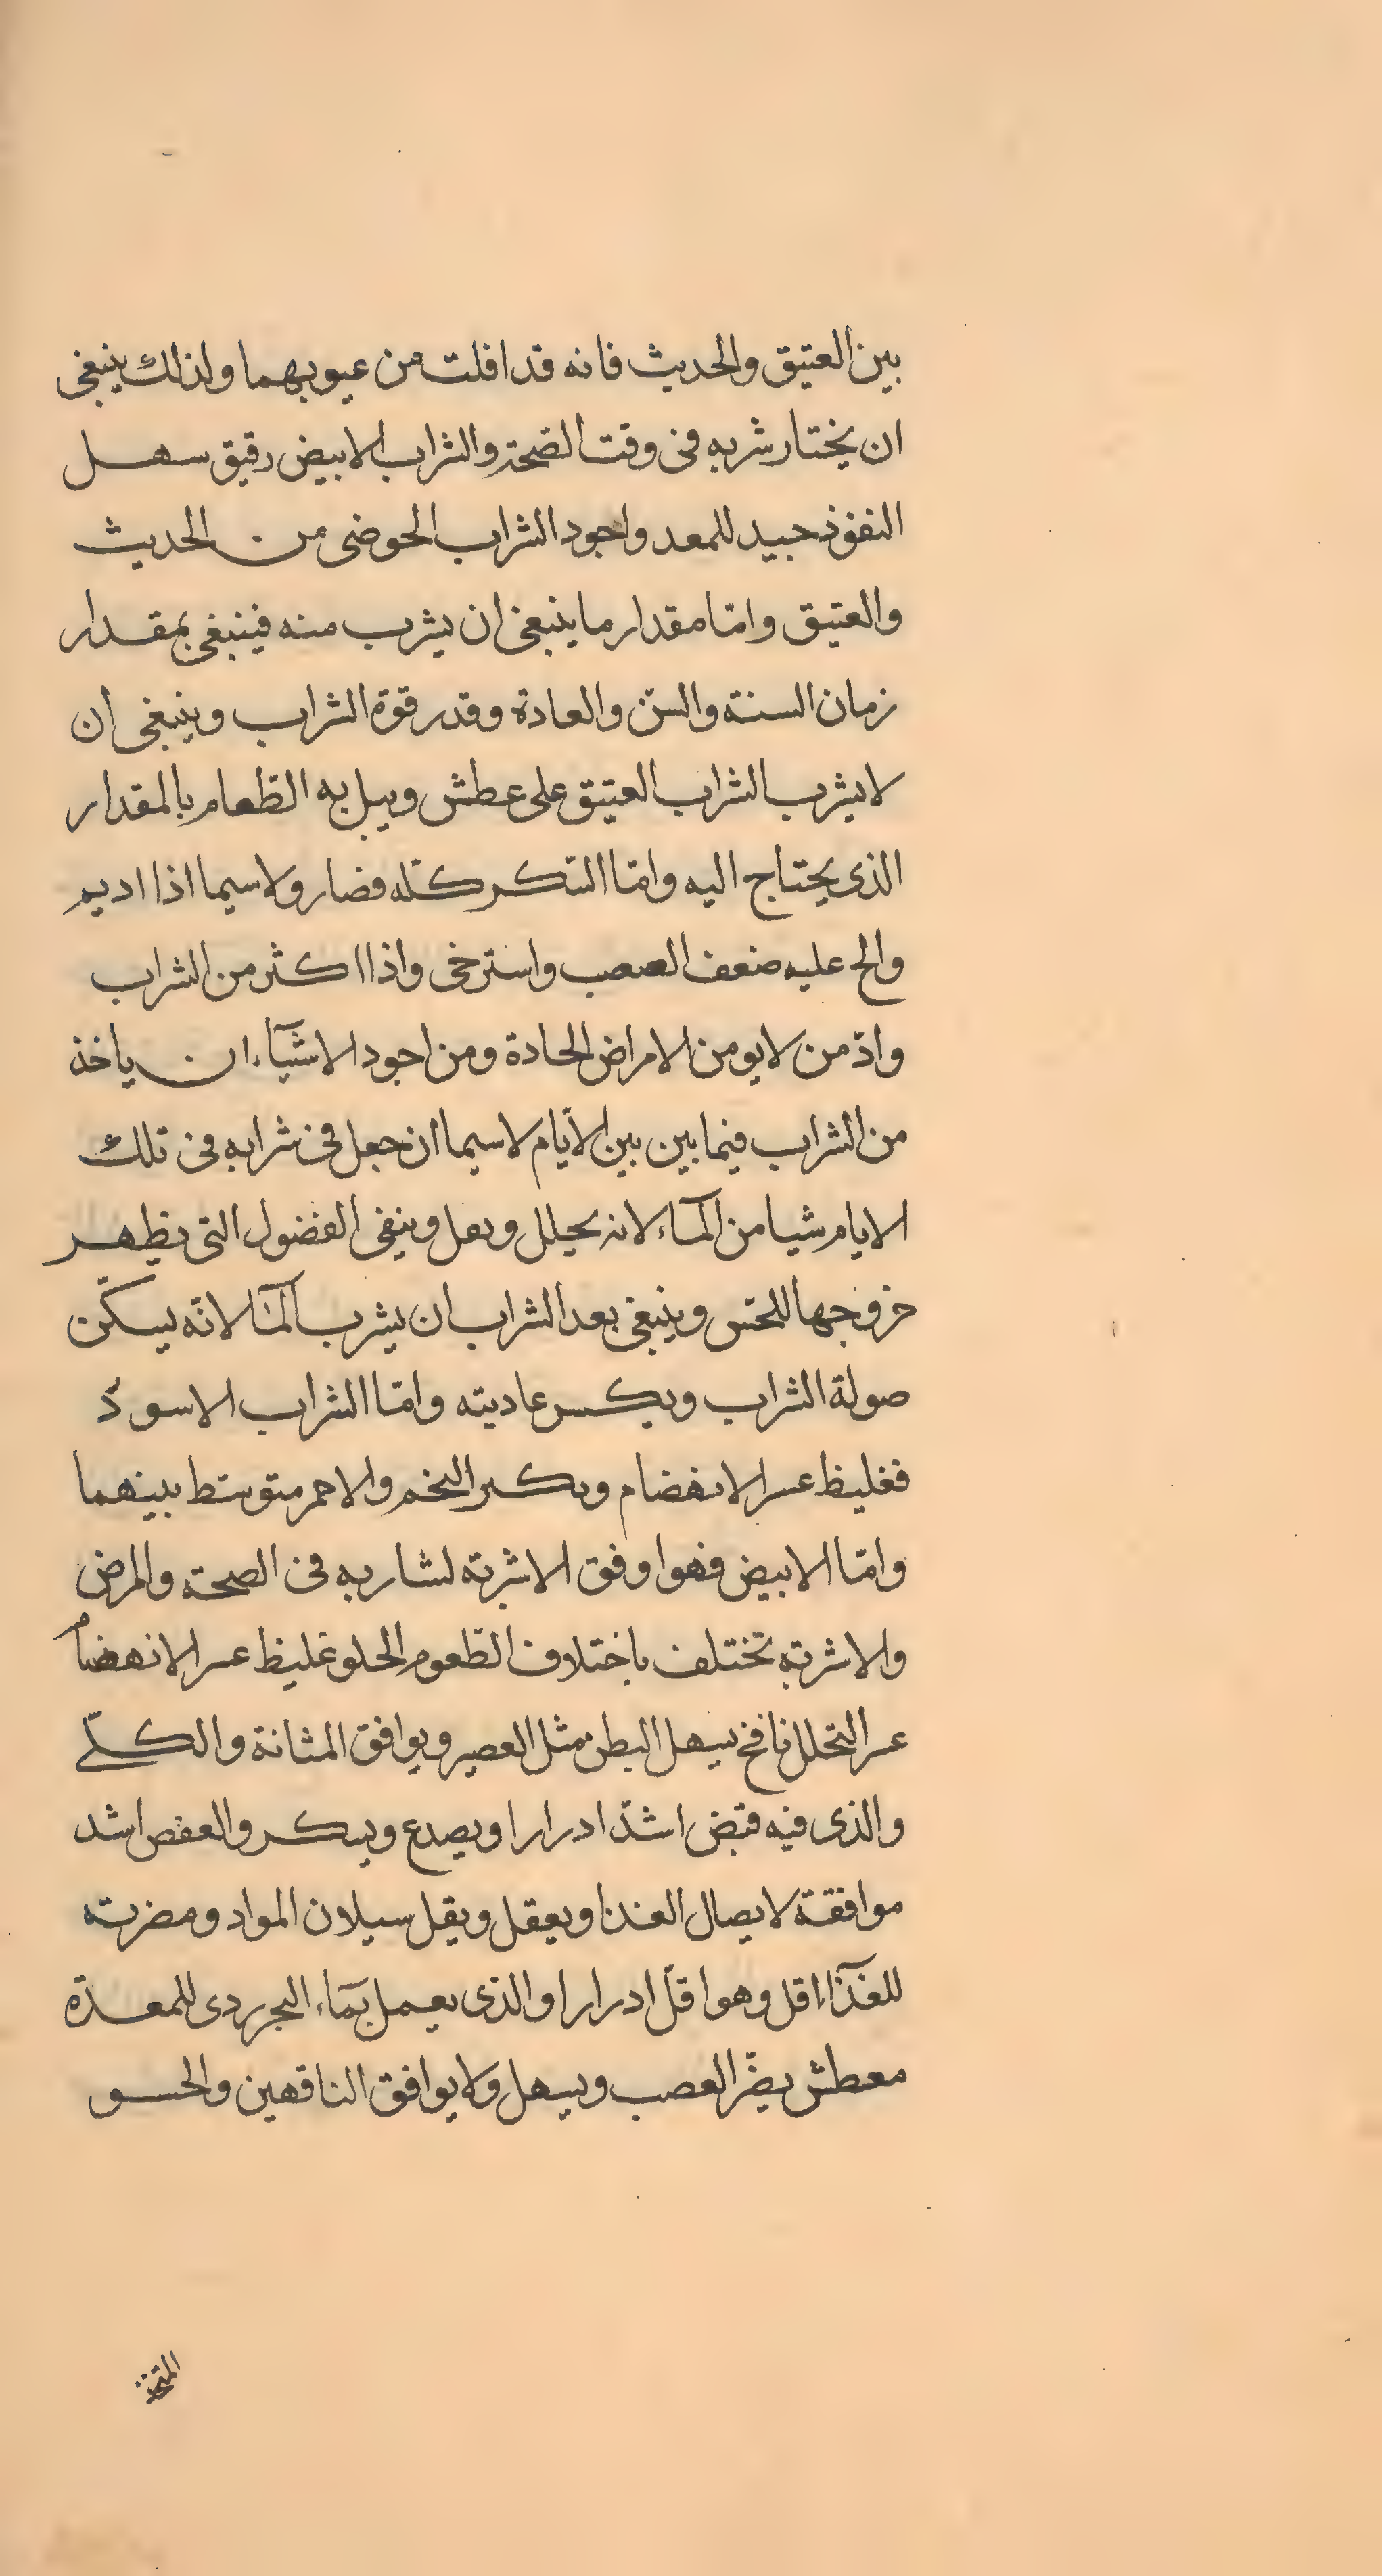 بين العتيق والحديث فانه قد افلت من عيوبهما ولذلك ينبغى
ان يختار شربه فى وقت الصّحة والشراب الابيض رقيق سهل
النفوذ جيد للمعد واجود الشراب الحوضى من الحديث
والعتيق وامّا مقدار ما ينبغى ان يشرب منه فينبغى بمقدار
زمان السنة والسنّ والعادة وقدر قوة الشراب وينبغى ان
لا يشرب الشراب العتيق على عطش ويبل به الطّعام بالمقدار
الذى يحتاج اليه وامّا السّكر كلّه فضار ولا سيما اذا اديم
والح عليه ضعف العصب واسترخى واذا اكثر من الشراب
وادّمن لا يومن الامراض الحادة ومن اجود الاشيآء ان ياخذ
من الشراب فيما بين بين الأيام لا سيما ان جعل فى شرابه فى تلك
الايام شيا من المآء لانه يحلل و وينفى الفضول التى يظهر
خروجها للحسّ وينبغى بعد الشراب ان يشرب المآ لانّه يسكّن
صولة الشراب ويكسر عاديته وامّا الشراب الاسود
فغليظ عسر الانهضام ويكسر التخم والاحمر متوسّط بينهما
وامّا الابيض فهو اوفق الاشربة لشاربه فى الصحة والمرض
والاشربة تختلف باختلاف الطّعوم الحلو غليظ عسر الانهضام
عسر التحلل نافخ يسهل البطن مثل العصير ويوافق المثانة والكلّى
والذى فيه قبض اشدّ ادرارا ويصدع ويسكر والعفص اشد
موافقة لايصال الغذا ويعقل ويقل سيلان المواد ومضرته
للغذآء اقل وهو اقلّ ادرارا والذى يعمل بمآء البحر ردى للمعدة
معطش يضّر العصب ويسهل ولا يوافق الناقهين والحسو